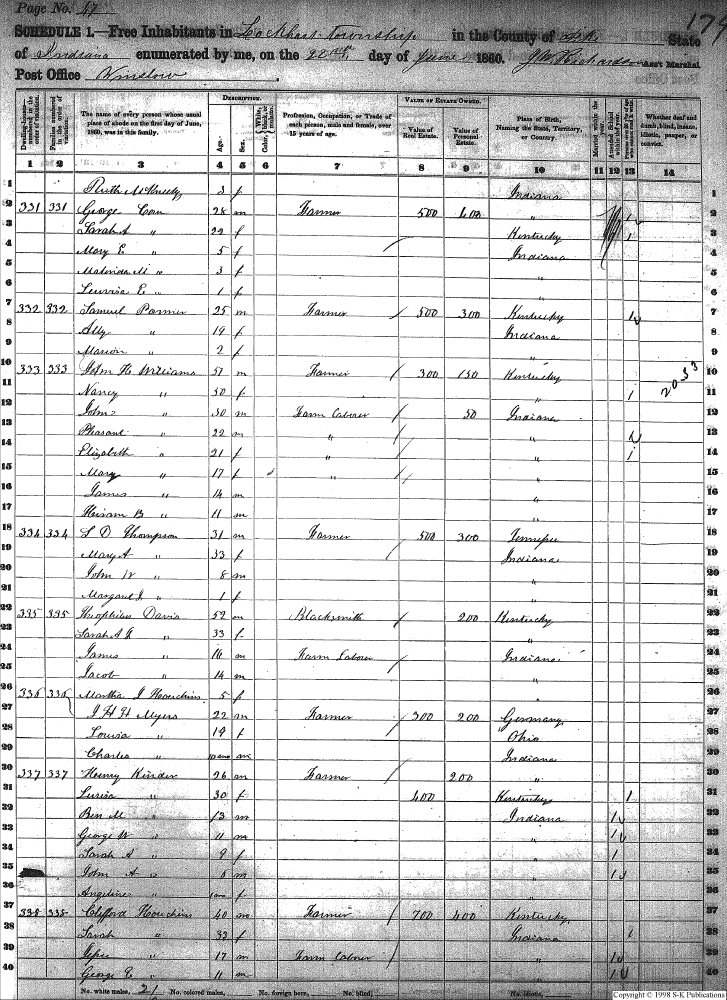 Page No. 47
179
SCHEDULE 1.—Free Inhabitants in Lockhart township in the County of Pike State
of Indiana enumerated by me, on the day of June 1860. Richardson Ass't Marshal
Post Office Winslow
Dwelling-houses numbered in the order of visitation.
Families numbered in the order of visitation.
The name of every person whose usual place of abode on the first day of June, 1860, was in this family.
DESCRIPTION.
Age.
Sex.
Profession, Occupation, or Trade of each person, male and female, over 15 years of age.
VALUE OF ESTATE OWNED.
Value of Real Estate.
Value of Personal Estate.
Place of Birth, Naming the State, Territory, or Country.
Whether deaf and dumb, blind, insane, idiotic, pauper, or convict.
1 2 3 4 5 6 7 8 9 10 11 12 13 14
1 Ruth 3 f Indiana
2 331 331 George 28 m Farmer 500 600 " 1
3 Sarah A " 22 f Kentucky 1
4 Mary E " 5 f Indiana
5 Malinda M " 3 f "
6 E " 1 f "
7 332 332 Samuel Parmer 25 m Farmer 500 300 Kentucky 1
8 Ally " 19 f Indiana
9 Marion " 2 f "
10 333 333 John H Williams 51 m Farmer 300 150 Kentucky 2033
11 Nancy " 50 f " 1
12 John " 30 m Farm Laborer 50 Indiana
13 Pleasant " 22 m " "
14 Elizabeth " 21 f " " 1
15 Mary " 17 f " "
16 James " 14 m "
17 Hiram B " 11 m "
18 334 334 S D Thompson 31 m Farmer 500 300 Tennessee
19 Mary A " 33 f Indiana
20 John W " 8 m "
21 Margaret J " 1 f "
22 335 335 Theophilus Davis 52 m Blacksmith 200 Kentucky
23 Sarah A " 33 f "
24 James " 16 m Farm Laborer Indiana
25 Jacob " 14 m "
26 336 336 Martha J Houchins 5 f "
27 J H H Myers 22 m Farmer 300 200 Germany
28 Louisa " 19 f Ohio
29 Charles " m Indiana
30 337 337 Henry Kinder 26 m Farmer 200 "
31 Lurisa " 30 f 400 Kentucky 1
32 Ben M " 13 m Indiana 1
33 George W " 11 m " 1
34 Sarah A " 9 f " 1
35 John A " 6 m " 1
36 Angeline " f "
37 338 338 Clifford Houchins 40 m Farmer 700 400 Kentucky
38 Sarah " 33 f Indiana 1
39 " 17 m Farm Laborer " 1
40 George E " 11 m " 1
No. white males, 21 No. colored males, No. foreign born, No. blind, No. idiotic,
Copyright © 1998 S-K Publications